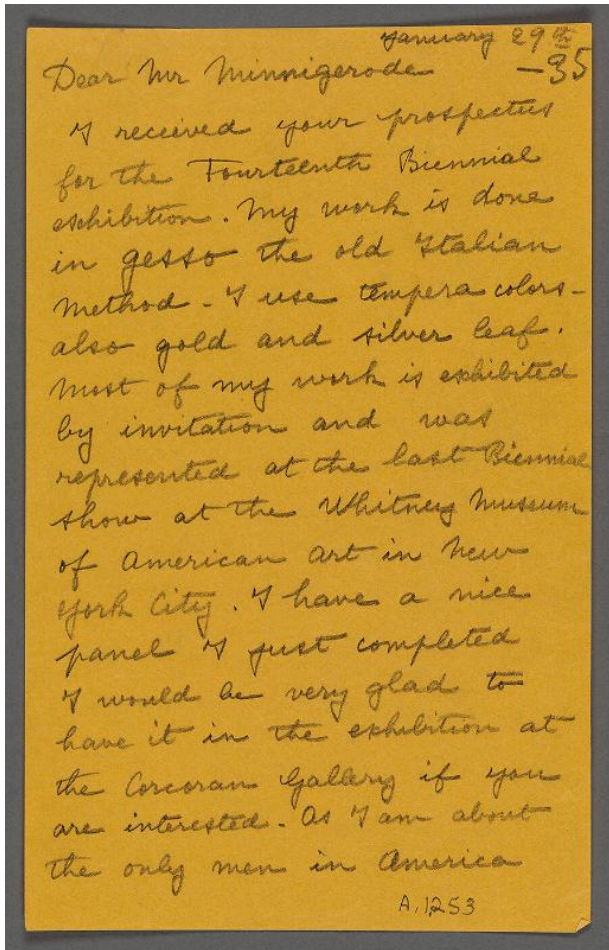 January 29th
Dear Mr Minnigerode
-35
I received your prospectus
for the Fourteenth Biennial
exhibition. My work is done
in gesso the old Italian
method - I use tempera colors -
also gold and silver leaf.
Most of my work is exhibited
by invitation and was
represented at the last Biennial
show at the Whitney Museum
of American Art in New
York City. I have a nice
panel I just completed
I would be very glad to
have it in the exhibition at
the Corcoran Gallery if you
are interested. As I am about
the only men in America
A.1253